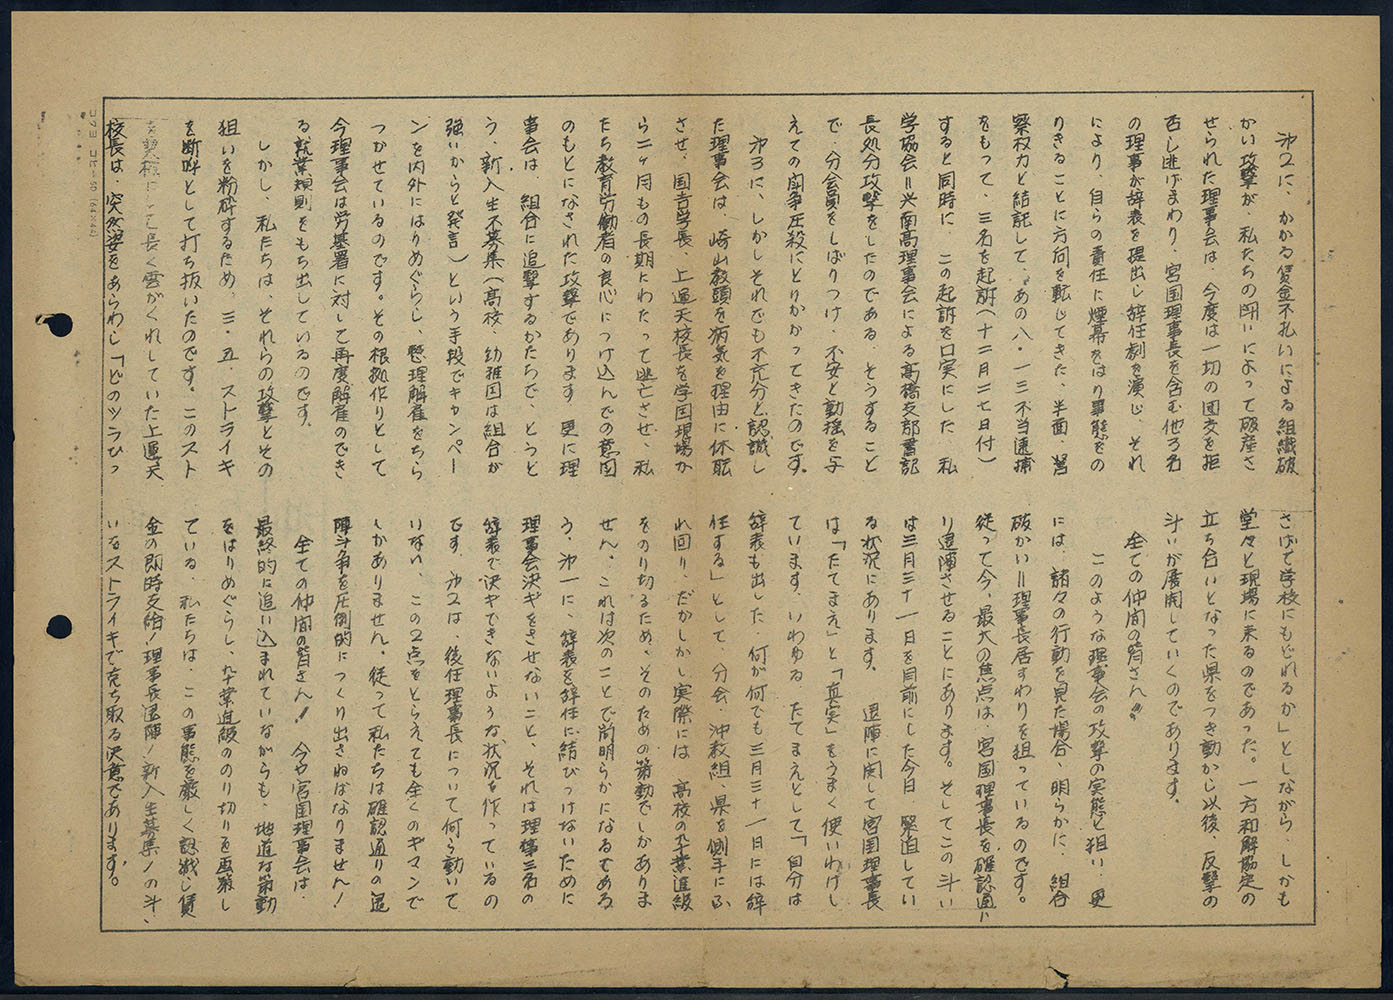 才2に、かかる賃金不払いによる組織破
かい攻撃が、私たちの闘いによって破産さ
せられた理事会は、今度は一切の団交を拒
否し逃げまわり、宮国理事長を含む他3名
の理事が辞表を提出し辞任劇を演じ、それ
により、自らの責任に煙幕をはり事態をの
りきることに方向を転じてきた、半面、警
察权力と結託して、あの八・一三不当逮捕
をもって、三名を起訴(十二月二七日付)
すると同時に、この起訴を口実にした、私
学協会=興南高理事会による高橋支部書記
長処分攻撃をしたのである。そうすること
で、分会員をしばりつけ、不安と動揺を与
えての闘争圧殺にとりかかってきたのです。
才3に、しかしそれでも不充分と認識し
た理事会は、崎山教頭を病気を理由に休職
させ、国吉学長、上運天校長を学園現場か
ら二ヶ月もの長期にわたって逃亡させ、私
たち教育労働者の良心につけ込んでの意図
のもとになされた攻撃であります。更に理
事会は、組合に追撃するかたちで、とうと
う、新入生不募集(高校・幼稚園は組合が
強いからと発言)という手段でキャンペー
ンを内外にはりめぐらし、整理解雇をちら
つかせているのです。その根拠作りとして
今理事会は労基署に対して再度解雇のでき
る就業規則をもち出しているのです。
しかし、私たちは、それらの攻撃とその
狙いを粉砕するため、三・五、ストライキ
を断呼として打ち抜いたのです。このスト
を契機にして長く雲がくれしていた上運天
校長は、突然姿をあらわし「どのツラひっ
さげて学校にもどれるか」としながら、しかも
堂々と現場に来るのであった。一方和解協定の
立ち合いとなった県をつき動かし以後、反撃の
斗いが展開していくのであります。
全ての仲間の皆さん!!
このような理事会の攻撃の実態と狙い、更
には、諸々の行動を見た場合、明らかに、組合
破かい=理事長居すわりを狙っているのです。
従って今、最大の焦点は、宮国理事長を確認通い
り退陣させることにあります。そしてこの斗い
は三月三十一日を目前にした今日、緊迫してい
る状況にあります。 退陣に関して宮国理事長
は「たてまえ」と「真実」をうまく使いわけし
ています。いわゆる、たてまえとして「自分は
辞表も出した、何が何でも三月三十一日には辞
任する」として、分会、沖教組、県を側手にふ
れ回り、だがしかし実際には、高校の九十業進級
をのり切るため、そのための策動でしかありま
せん。これは次のことで尚明らかになるであろ
う、才一に、辞表を辞任に結びつけないために
理事会決ギをさせないこと、それは理事三名の
辞表で決ギできないような状況を作っているの
です。才2は、後任理事長について何ら動いて
いない、この2点をとらえても全くのギマンで
しかありません。従って私たちは確認通りの退
陣斗争を圧倒的につくり出さねばなりません!
全ての仲間の皆さん!! 今や宮国理事会は、
最終的に追い込まれていながらも、地道な策動
をはりめぐらし、九十業進級ののり切りを画策し
ている。私たちは、この事態を厳しく認識し賃
金の即時支給!理事長退陣!新入生募集!の斗
いをストライキで克ち取る決意であります。
コクヨ コピー50 (64×44)